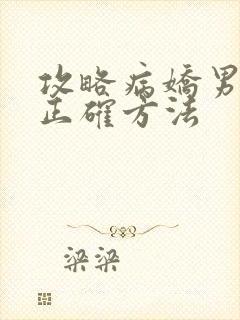 攻略病嬌男
正確方法
梁梁